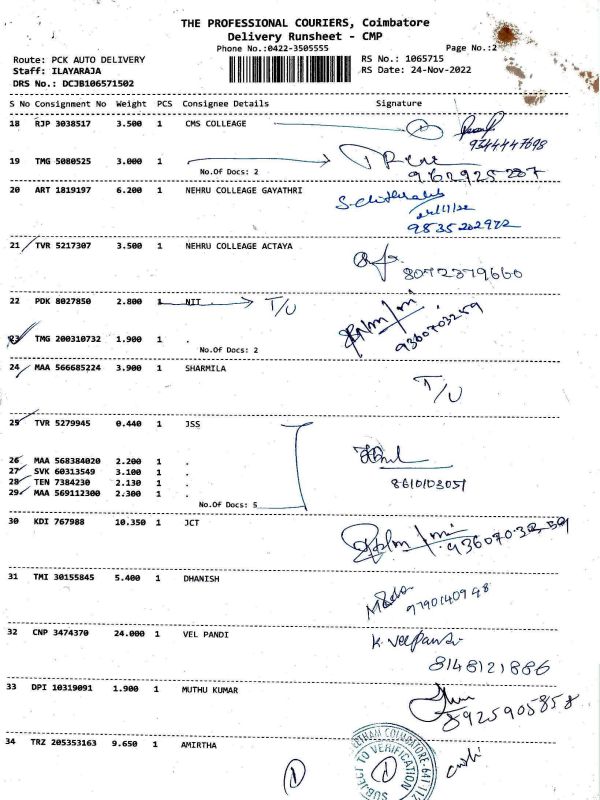 THE PROFESSIONAL COURIERS, Coimbatore
Delivery Runsheet - CMP
Phone No.:0422-3505555
Page No.:2
Route: PCK AUTO DELIVERY
RS No.: 1065715
Staff: ILAYARAJA
RS Date: 24-Nov-2022
DRS No.: DCJB106571502
S No Consignment No Weight PCS Consignee Details Signature
18 RJP 3038517 3.500 1 CMS COLLEAGE
9344447698
19 TMG 5080525 3.000 1 .
No.Of Docs: 2
9162925287
20 ART 1819197 6.200 1 NEHRU COLLEAGE GAYATHRI
9835202972
21 TVR 5217307 3.500 1 NEHRU COLLEAGE ACTAYA
8072379660
22 PDK 8027850 2.800 1 NIT T/U
23 TMG 200310732 1.900 1 .
No.Of Docs: 2
9360703259
24 MAA 566685224 3.900 1 SHARMILA
T/U
25 TVR 5279945 0.440 1 JSS
26 MAA 568384020 2.200 1 .
27 SVK 60313549 3.100 1 .
28 TEN 7384230 2.130 1 .
29 MAA 569112300 2.300 1 .
No.Of Docs: 5
8610103051
30 KDI 767988 10.350 1 JCT
31 TMI 30155845 5.400 1 DHANISH
9790140948
32 CNP 3474370 24.000 1 VEL PANDI
K. Velpandi
8148121886
33 DPI 10319091 1.900 1 MUTHU KUMAR
8925905858
34 TRZ 205353163 9.650 1 AMIRTHA
COIMBATORE-641 112
SUBJECT TO VERIFICATION